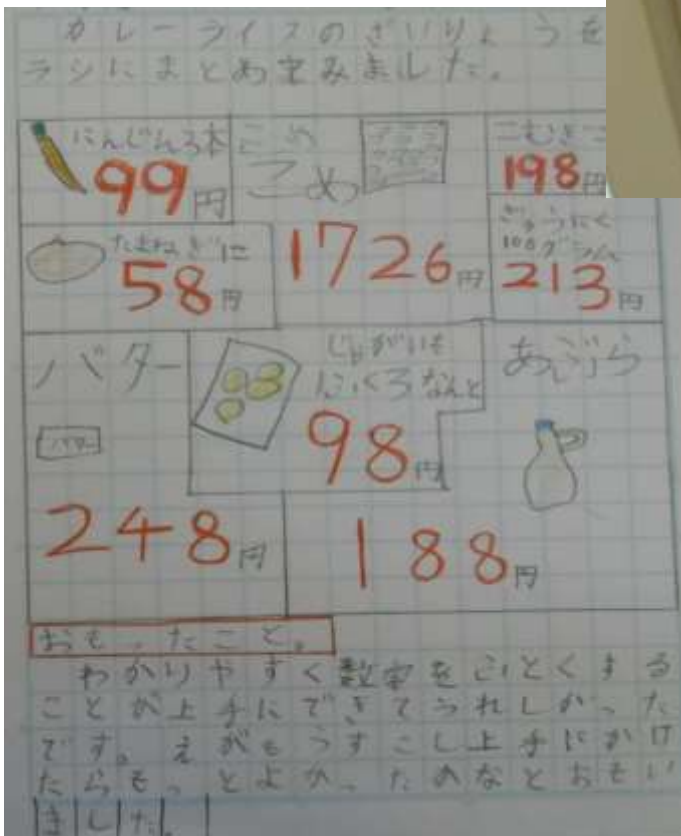 カレーライスのざいりょうを
ラシにまとめて みました。
にんじん3本
99円
こめ
こめ
1726円
198円
たまねぎ
58円
ぎゅうにく
100グラム
213円
バター
バター
248円
じゃがいも
なんと
98円
あぶら
188円
おもったこと。
わかりやすく数字を くする
ことが上手にできてうれしかった
です。えがもうすこし上手にかけ
たらもっとよかった なとおもい
ました。